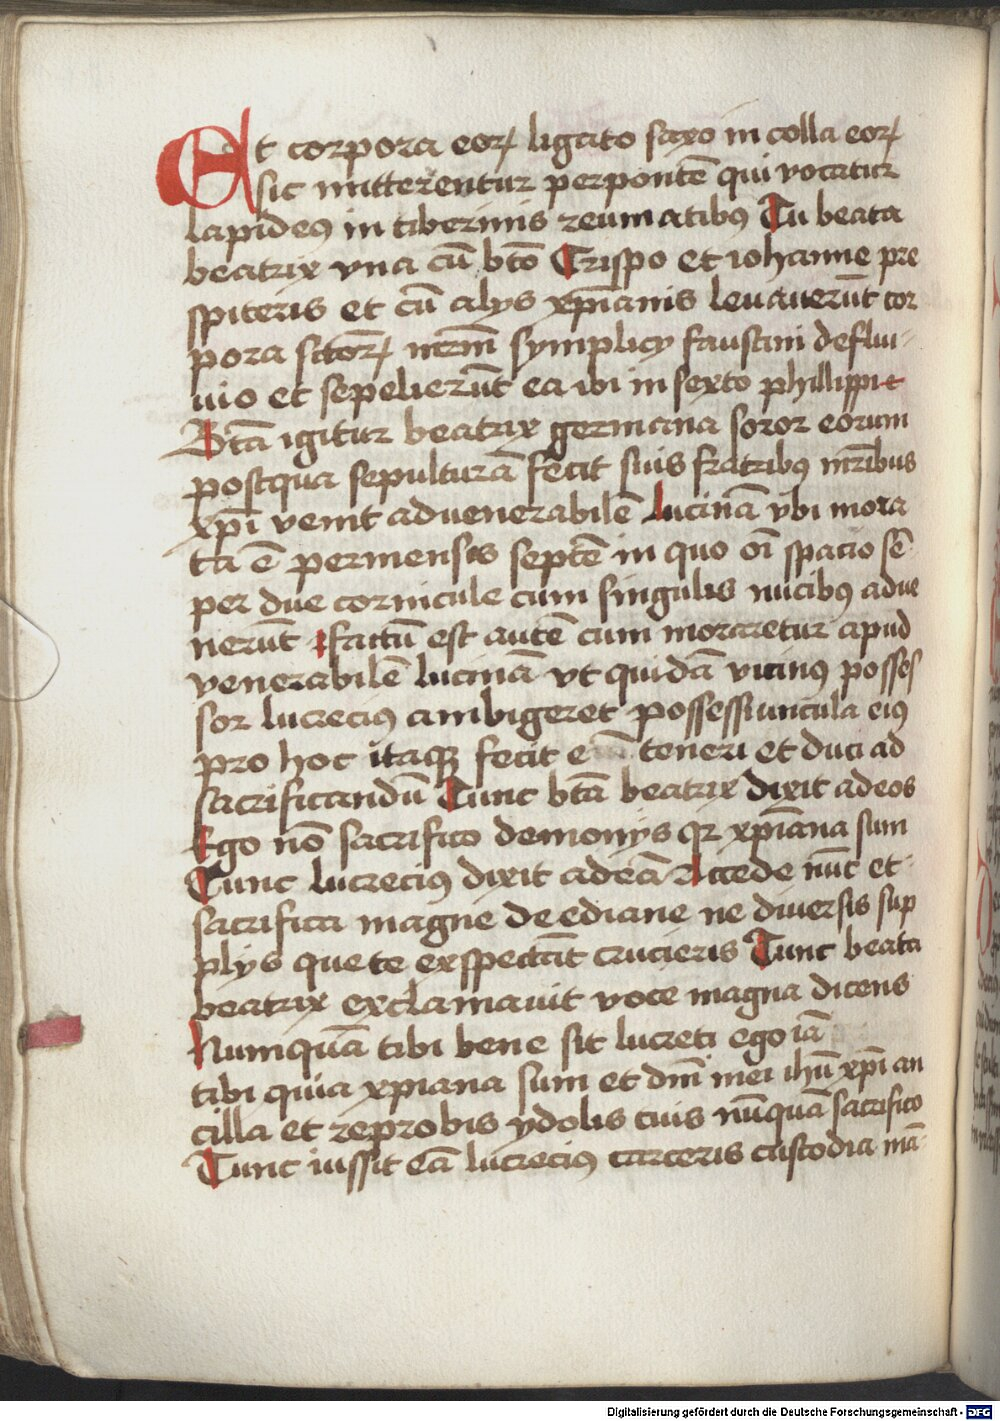 Et corpora eoꝝ ligato saxo in colla eoꝝ
sic mitterentur per pontē qui vocatur
lapideꝰ in tiberinis reumatibꝰ Tu beata
beatrix vna cū bto Crispo et iohanne pre
spiteris et cū alys xpianis leuauerūt cor
pora sctoꝝ mrm̄ symplicy faustini de flui
uio et sepelierūt ea ibi in sexto phillippi
Btā igitur beatrix germana soror eorum
postqua sepulturā fecit suis fratribꝰ mr̄ibus
xpi venit ad venerabilē lucinā vbi mora
ta ē per menses septē in quo oī spacio sē
per due cornicule cum singulis nucibꝰ adue
nerūt factū est autē cum moraretur apud
venerabilē lucinā vt quidā vicinꝰ posses
sor lucreciꝰ ambigeret possessiuncula eiꝰ
pro hoc itaqꝫ fecit e teneri et duci ad
sacrificandū Tunc btā beatrix dixit ad eos
Ego nō sacrifico demonys qꝛ xpiana sum
Tunc lucreciꝰ dixit ad eā Accede nūc et
sacrifica magne dee diane ne diuersis sup
plys que te exspectāt crucieris Tunc beata
beatrix exclamauit voce magna dicens
Numquā tibi bene sit lucreti ego iā
tibi quia xpiana sum et dn̄i mei ihū xpi an
cilla et reprobis ydolis tuis nūquā sacrifico
Tunc iussit eā lucreciꝰ carceris custodia mā
Digitalisierung gefördert durch die Deutsche Forschungsgemeinschaft - DFG